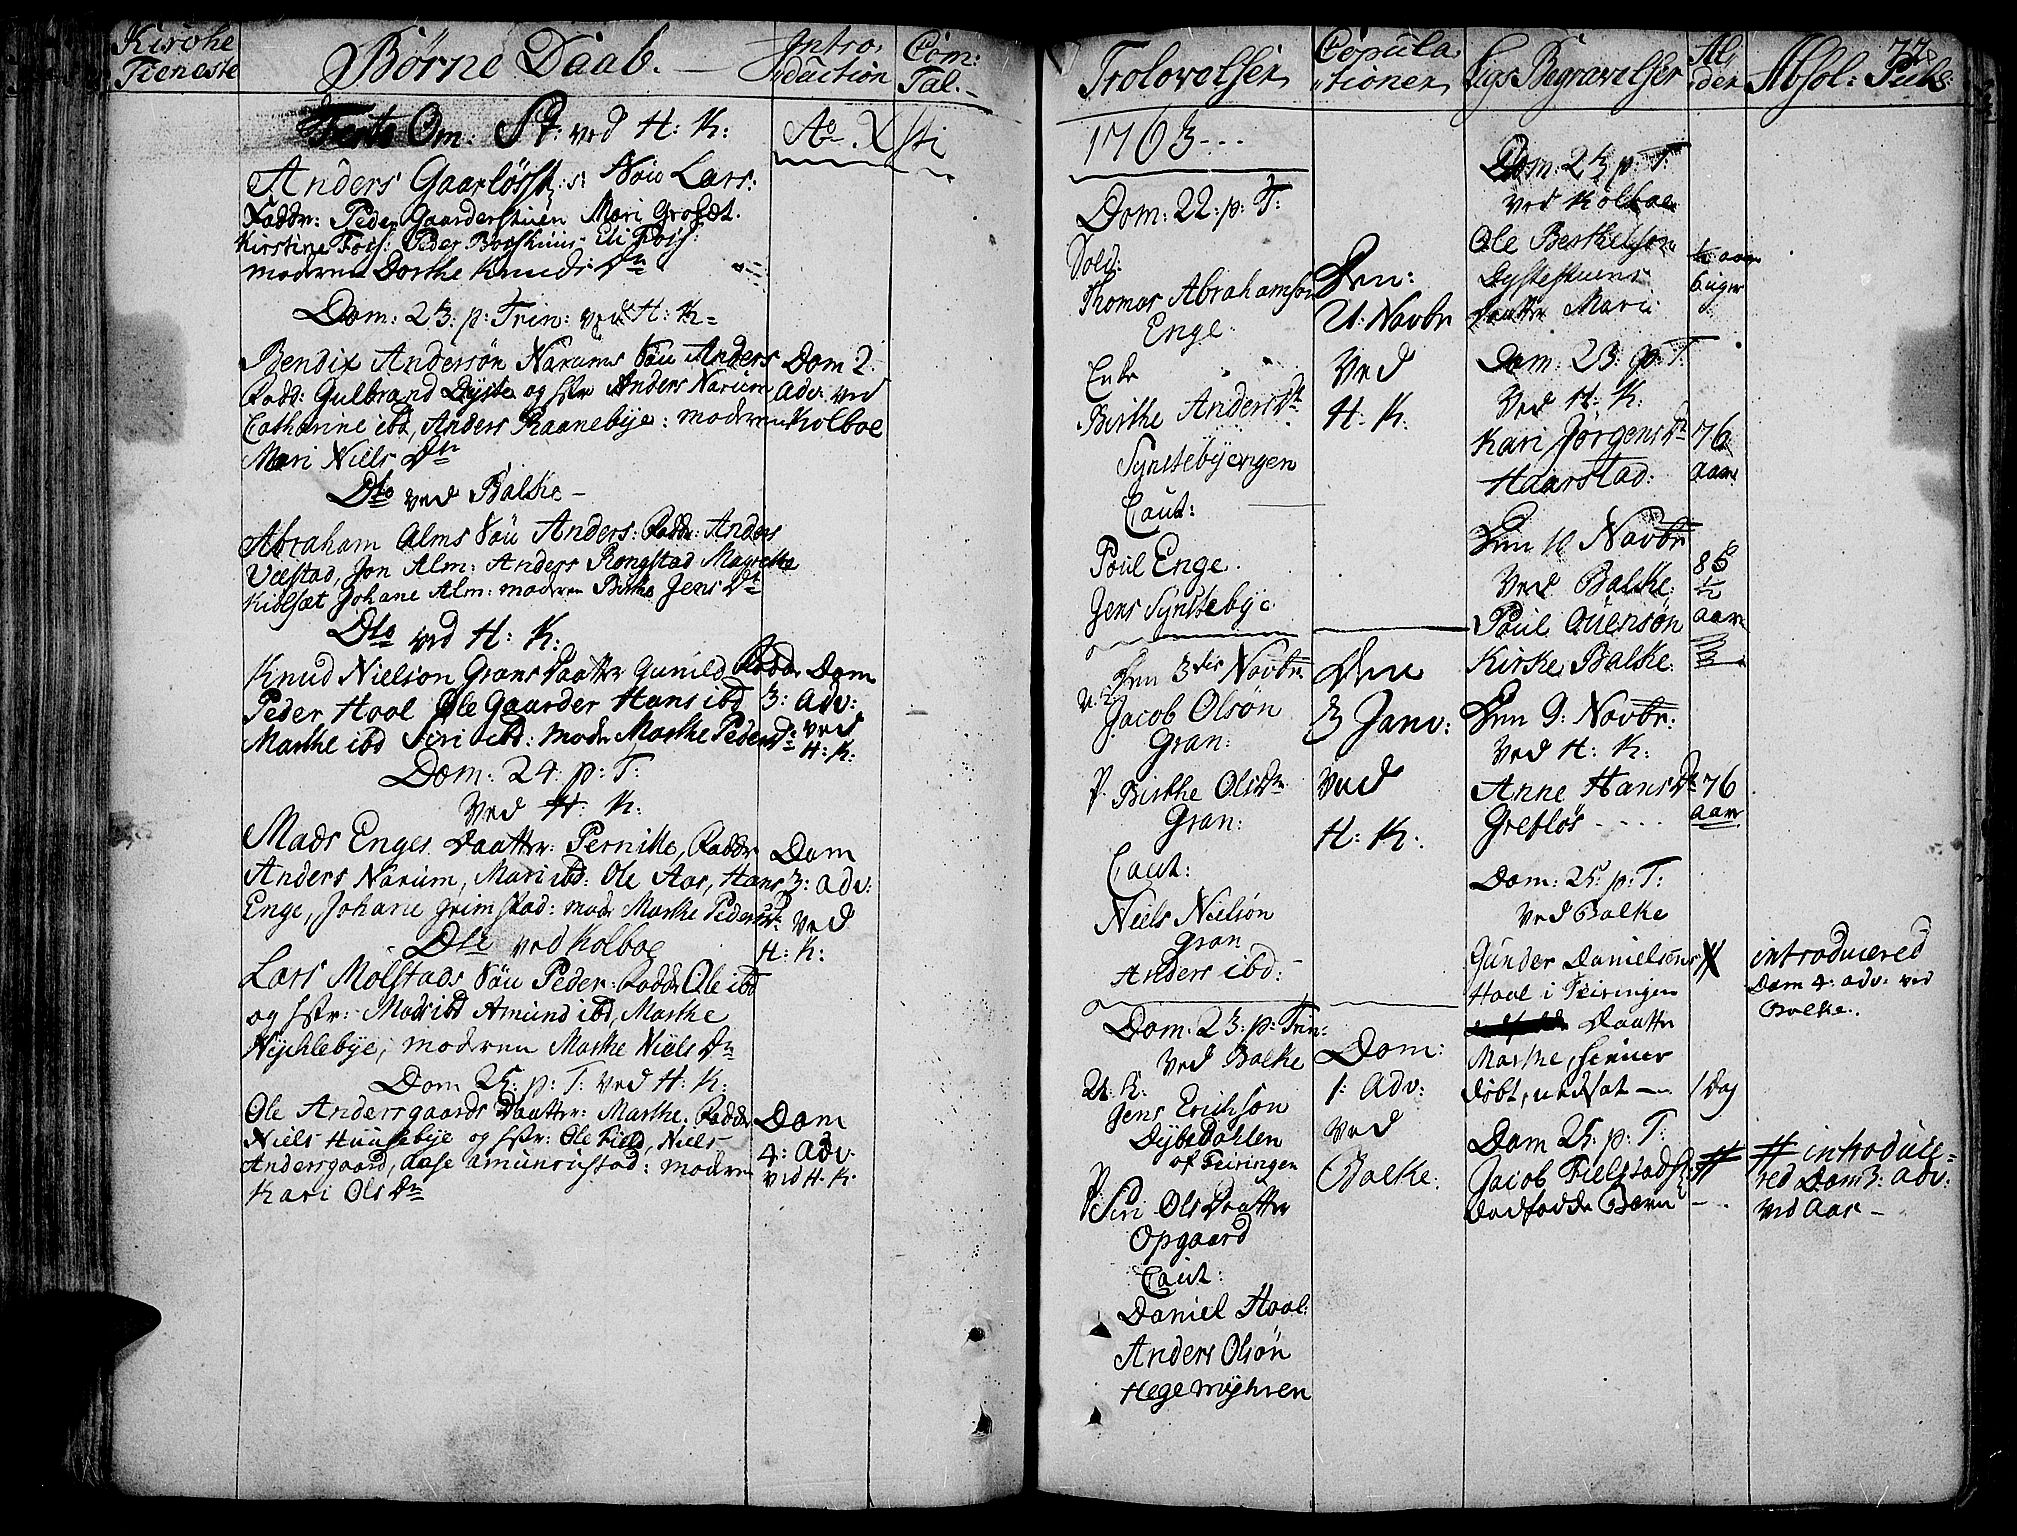 Kirche
Tieneste
Børne Daab.
Intro,
duction
Com:
Tal.
Om: St: ved H: K:
Ao Xsti
Anders Gaarløss Søn Lars:
Faddr: Peder Gaarderstuen Mari
Kirstine Peder Eli
moderen Dorthe Knuds Dn
Dom: 23: p: Trin: ved H: K:
Bendix Andersøn Narums Søn Anders
Fadd: Gulbrand Dyste og Anders Narum
Catharine ibd, Anders Raanebye: moderen
Mari Niels Dn
Dom 2.
Adv: ved
Kolboe
Dto ved Balke –
Abraham Alms Søn Anders: Faddr: Anders
Vestad, Jon Alm: Anders Rongstad Magrethe
Kiølset Johane Alm: moderen Birthe Jens Dt
Dto ved H: K:
Knud Nielson Grans Daatter Gunild Faddr
Peder Hoel Ole Gaarder Hans ibd
Marthe ibd Siri ibd: moder Marthe Peders D:
Dom
3: adv:
ved
H: K:
Dom: 24: p: T:
Ved H: K:
Mads Enges Daatter: Pernille, Faddr
Anders Narum, Mari ibd: Ole Aas, Hans
Enge, Johane Grimstad: moder Marthe Peders
Dom
3: adv:
ved
H: K:
Dto ved Kolboe
Lars Molstads Søn Peder: Faddr Ole ibd
og Mads ibd Amund ibd, Marthe
Nychlebye, moderen Marthe Niels Dn
Dom 25: p: T: Ved H: K:
Ole Andersgaards Daatter: Marthe: Faddr
Niels Huusebye og Ole Field, Niels
Andersgaard, Aase Amunrustad: moderen
Kari Ols Dn
Dom
4: Adv
ved H: K:
77
Trolovelser
Copula
tioner
Ligs Begravelser
Al
der
Absol: Publ:
1763 - - -
Dom: 22: p: T:
Sold:
Thomas Abrahamson
Enge:
Enke
Birthe Anders Dt
Synstebyengen
Caut:
Poul Enge.
Jens Synstebye
Den:
21: Novbr
Ved
H: K:
Den 3die Novbr
Jacob Olsøn
Gran:
P. Birthe Ols Dn
Gran:
Caut:
Niels Nielsøn
Gran
Anders ibd:
Den
3 Janv:
Ved
H: K:
Dom: 23: p: Trin:
Ved Balke
Jens Erichson
Dybedahlen
af Feiringen
P. Siri Ols Daatter
Opgaard
Caut:
Daniel Hoel:
Anders Olsøn
Hegemyhren
Dom:
1: Adv:
Ved
Balke.
Dom: 23 p: T:
ved Kolboe
Ole Berthelson
Dystestuens
Daatter Mari:
6 uger
Dom: 23: p: T:
Ved H: K:
Kari Jørgens Dt
Haarstad:
76
aar
Den 10 Novbr
Ved Balke
Poul Quensøn
Kirke Balke:
85
1/2
aar
Den 9: Novbr:
Ved H: K:
Anne Hans Dt
Grefløs - - - -
76
aar
Dom: 25: p: T:
Ved Balke
Gunder Danielsøns
Hoel i Feiringen
Daatter
Marthe, hiemme
døbt, uds: at –
1 Dag
introducered
Dom 4: adv: ved
Balke:.
Dom 25: p: T:
Jacob Fielstads #
Dødfødde Barn –
# introduce=
red Dom 3: adv:
ved Aas –